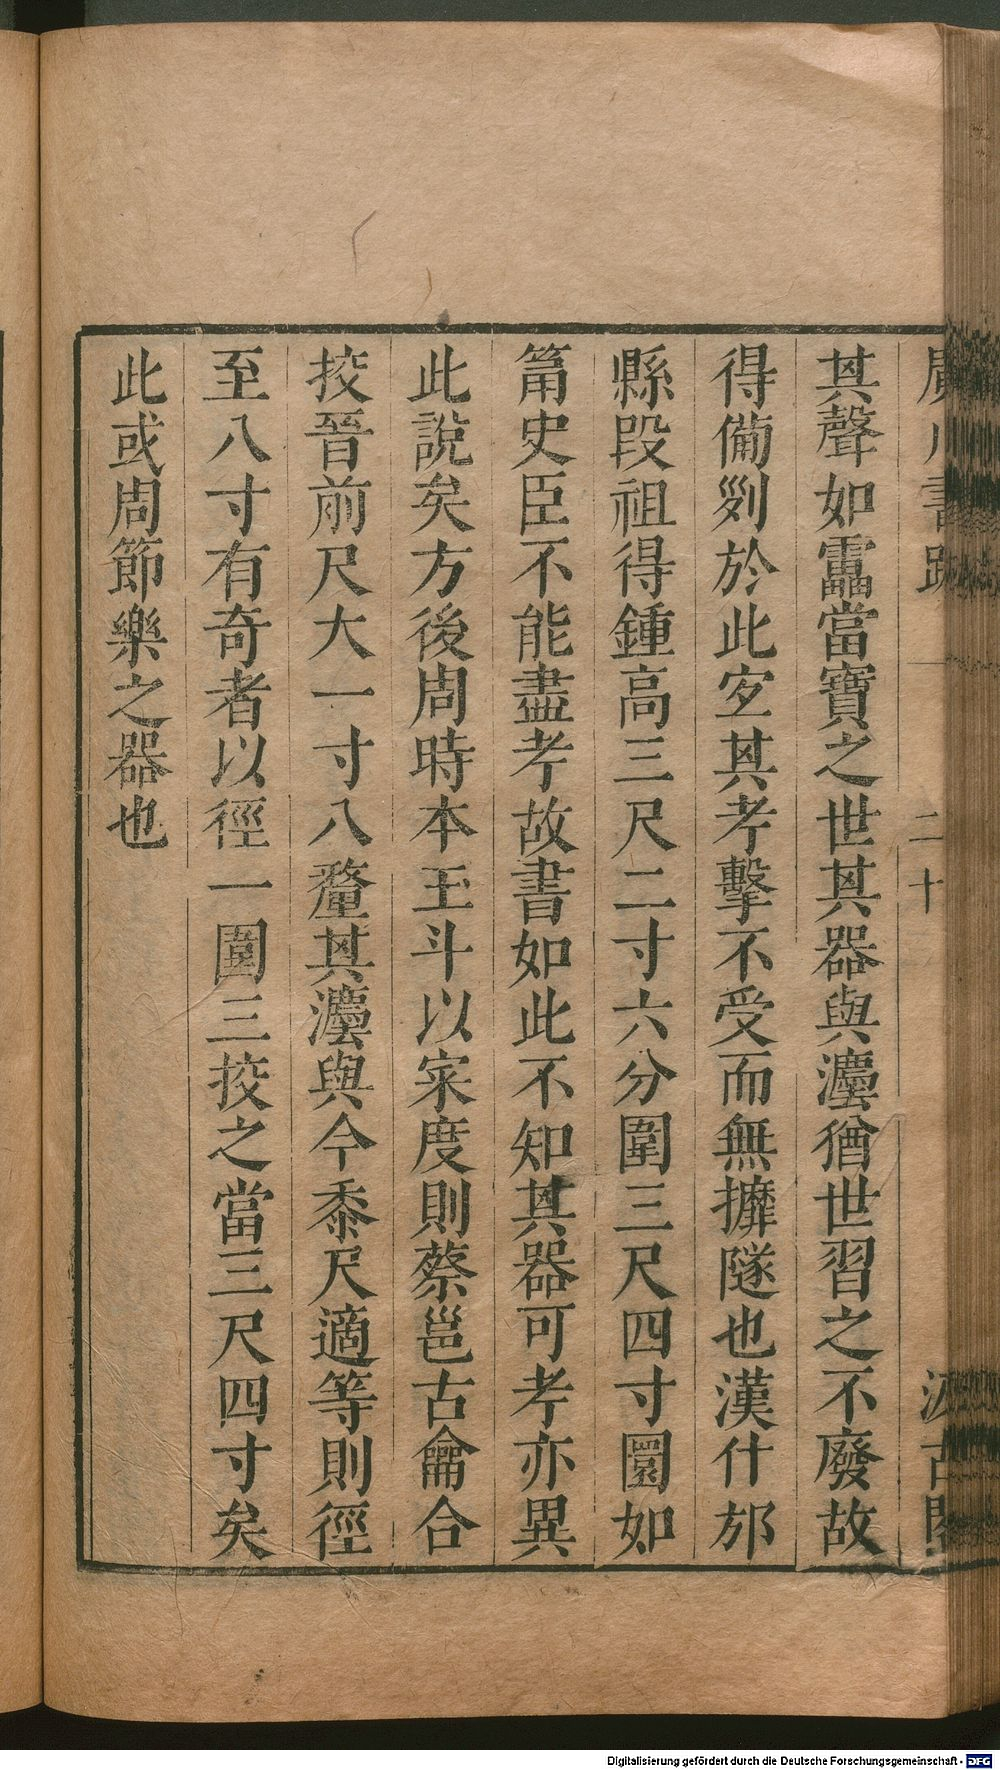 廣川書跋
二十
汲古閣
其聲如靁當寶之世其器與灋猶世習之不廢故
得備剡於此㝎其考擊不受而無攠隧也漢什邡
縣段祖得鍾高三尺二寸六分圍三尺四寸圜如
筩史臣不能盡考故書如此不知其器可考亦異
此說矣方後周時本玉斗以宷度則蔡邕古龠合
挍晉前尺大一寸八釐其灋與今黍尺適等則徑
至八寸有奇者以徑一圍三挍之當三尺四寸矣
此或周節樂之器也
Digitalisierung gefördert durch die Deutsche Forschungsgemeinschaft - DFG